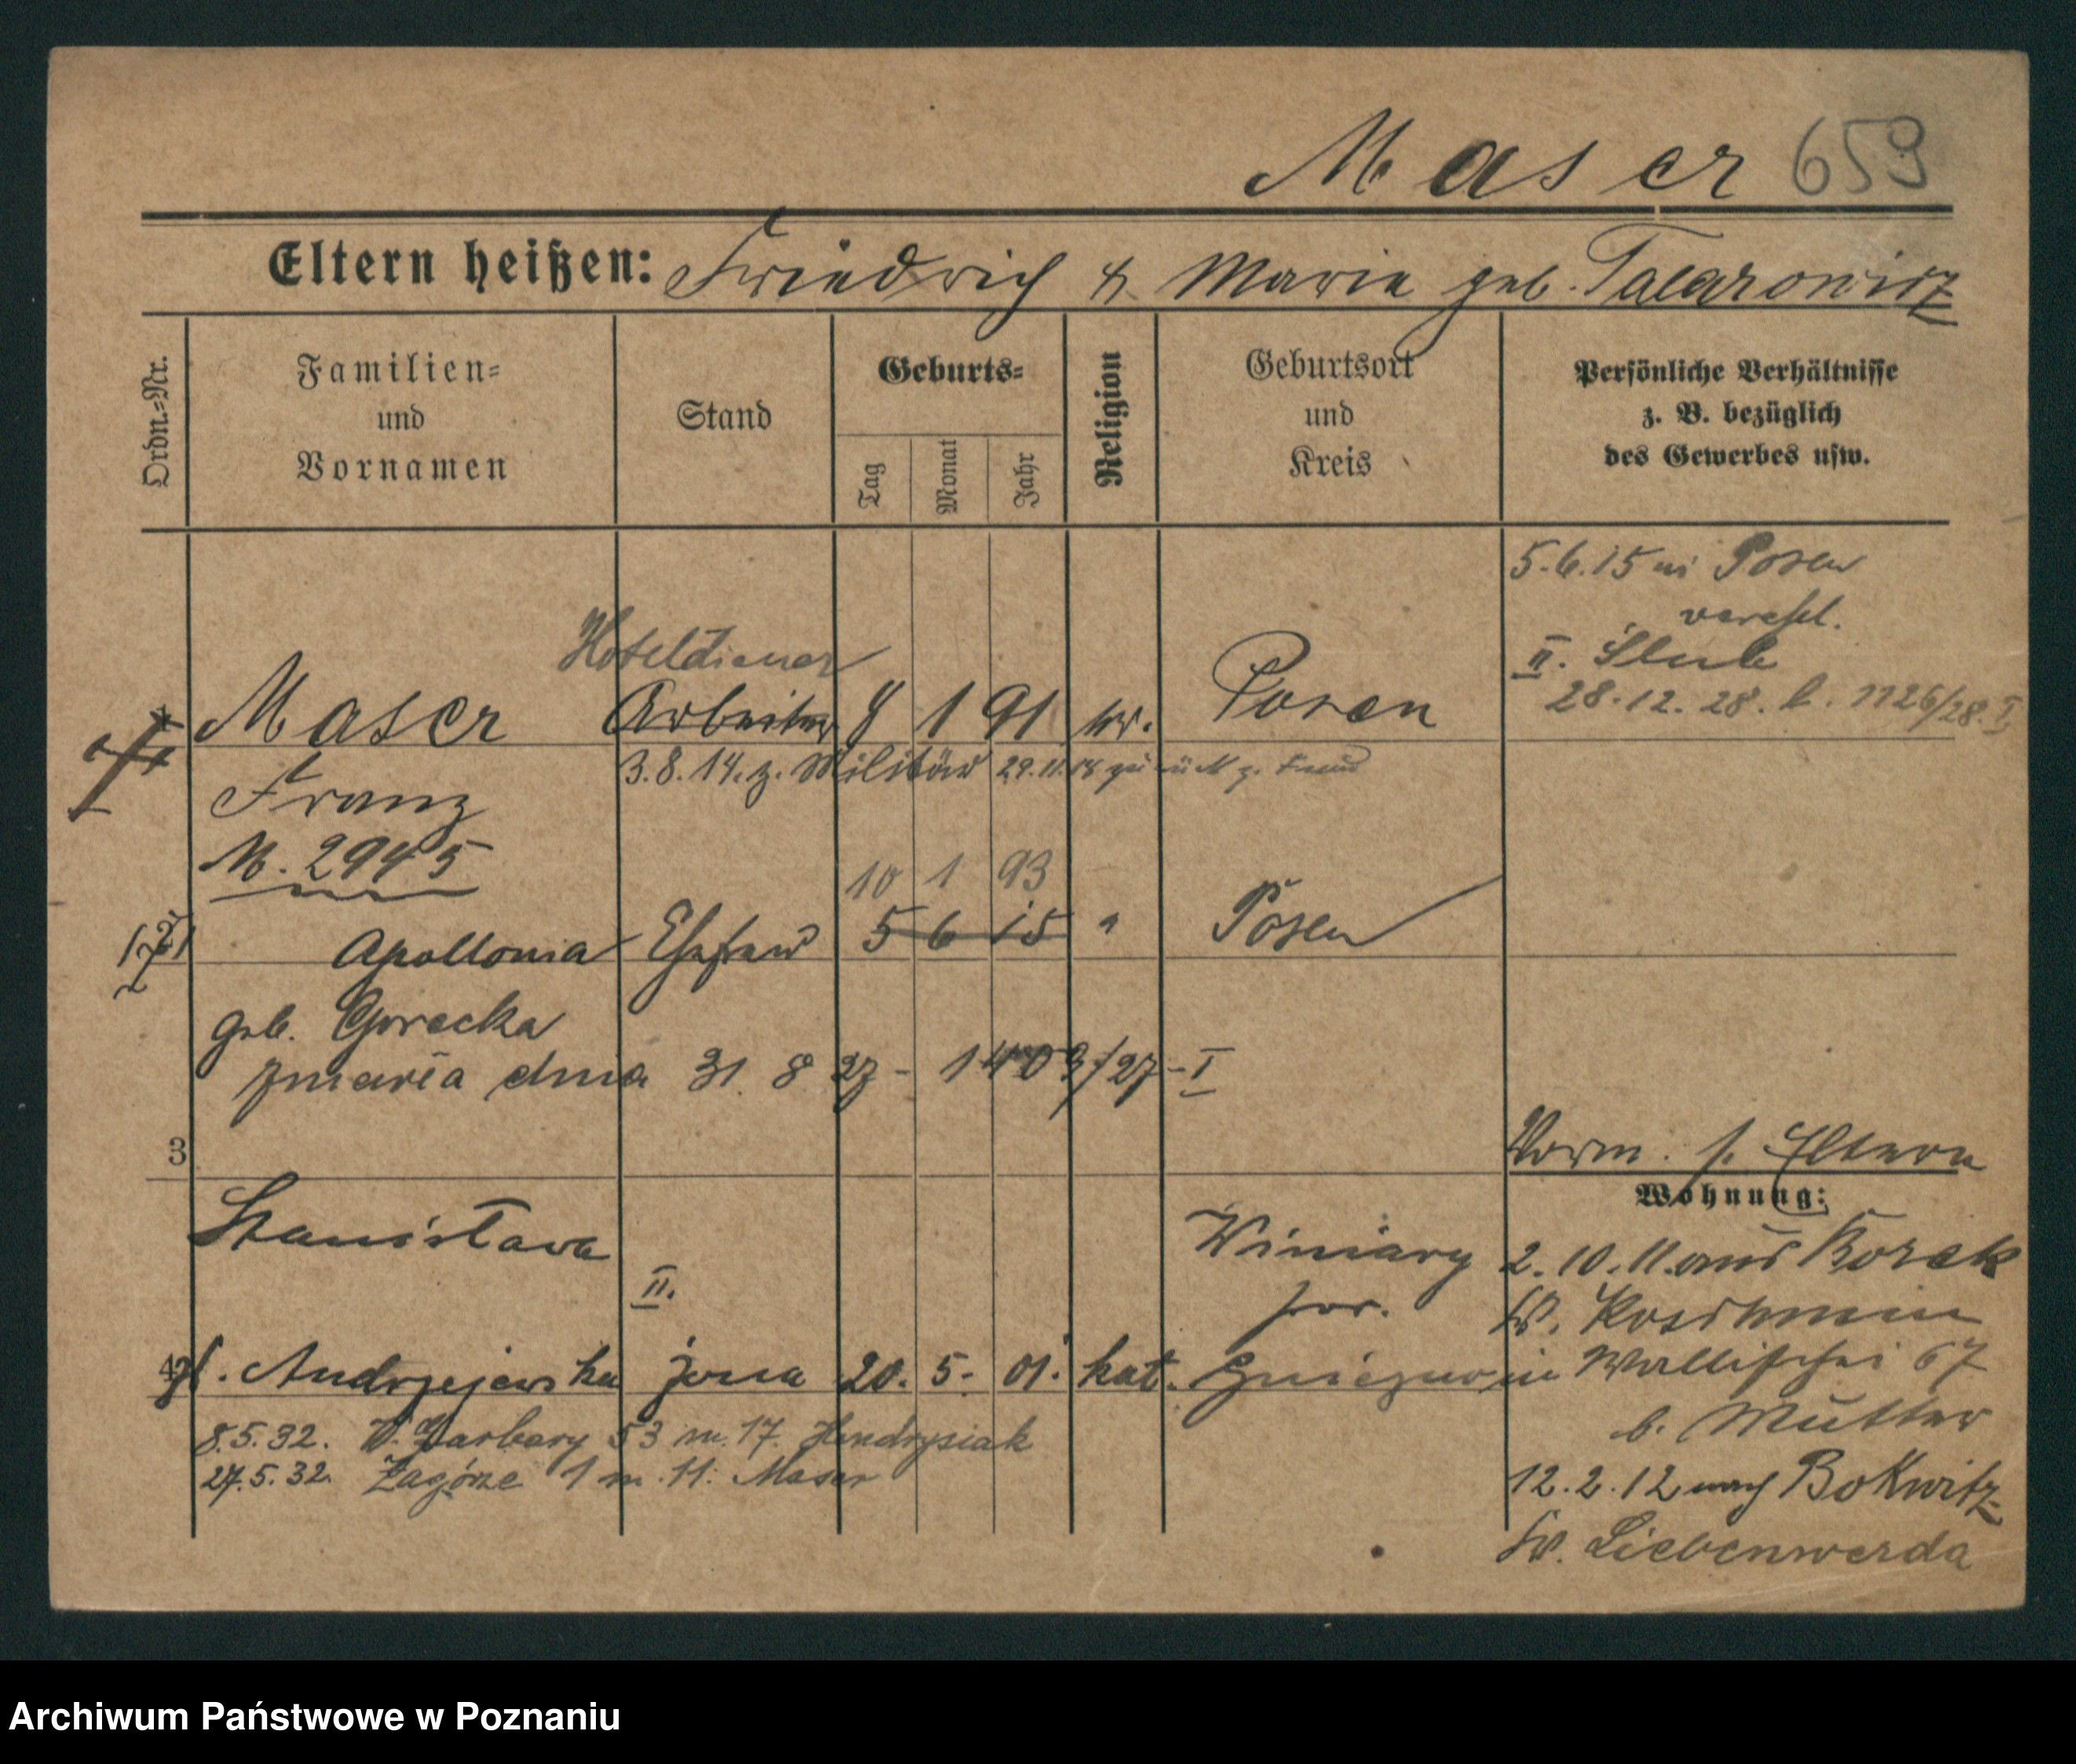 Maser 659
Eltern heißen: Friedrich & Maria geb. Talarowicz
Ordn.-Nr.
Familien-
und
Vornamen
Stand
Geburts-
Tag
Monat
Jahr
Religion
Geburtsort
und
Kreis
Persönliche Verhältnisse
z. B. bezüglich
des Gewerbes usw.
5.6.15 in Posen
verehl.
II. Ślub
28.12.28. l. 1126/28. I
Hoteldiener
Maser Arbeiter 8 1 91 Posen
3.8.14. z. Militär 29.11.18 zurück
Franz
M. 2945
10 1 93
Apollonia Ehefrau 5 6 15 " Posen
geb. Gorecka
zmarła dnia 31. 8 27 - 1403/27 - I
3
Vorm. s. Eltern
Wohnung:
Stanisława
II.
Winiary
pow.
2.10.11. aus Borek
Kr. Koschmin
4
z d. Andrzejewska żona 20. 5. 01. kat. Gniezno
in Wallischei 67
b. Mutter
8.5.32. W. Garbary 53 m. 17. Hendrysiak
27.5.32. Zagórze 1 m. 11. Maser
12.2.12 nach Bokwitz
Kr. Liebenwerda
Archiwum Państwowe w Poznaniu